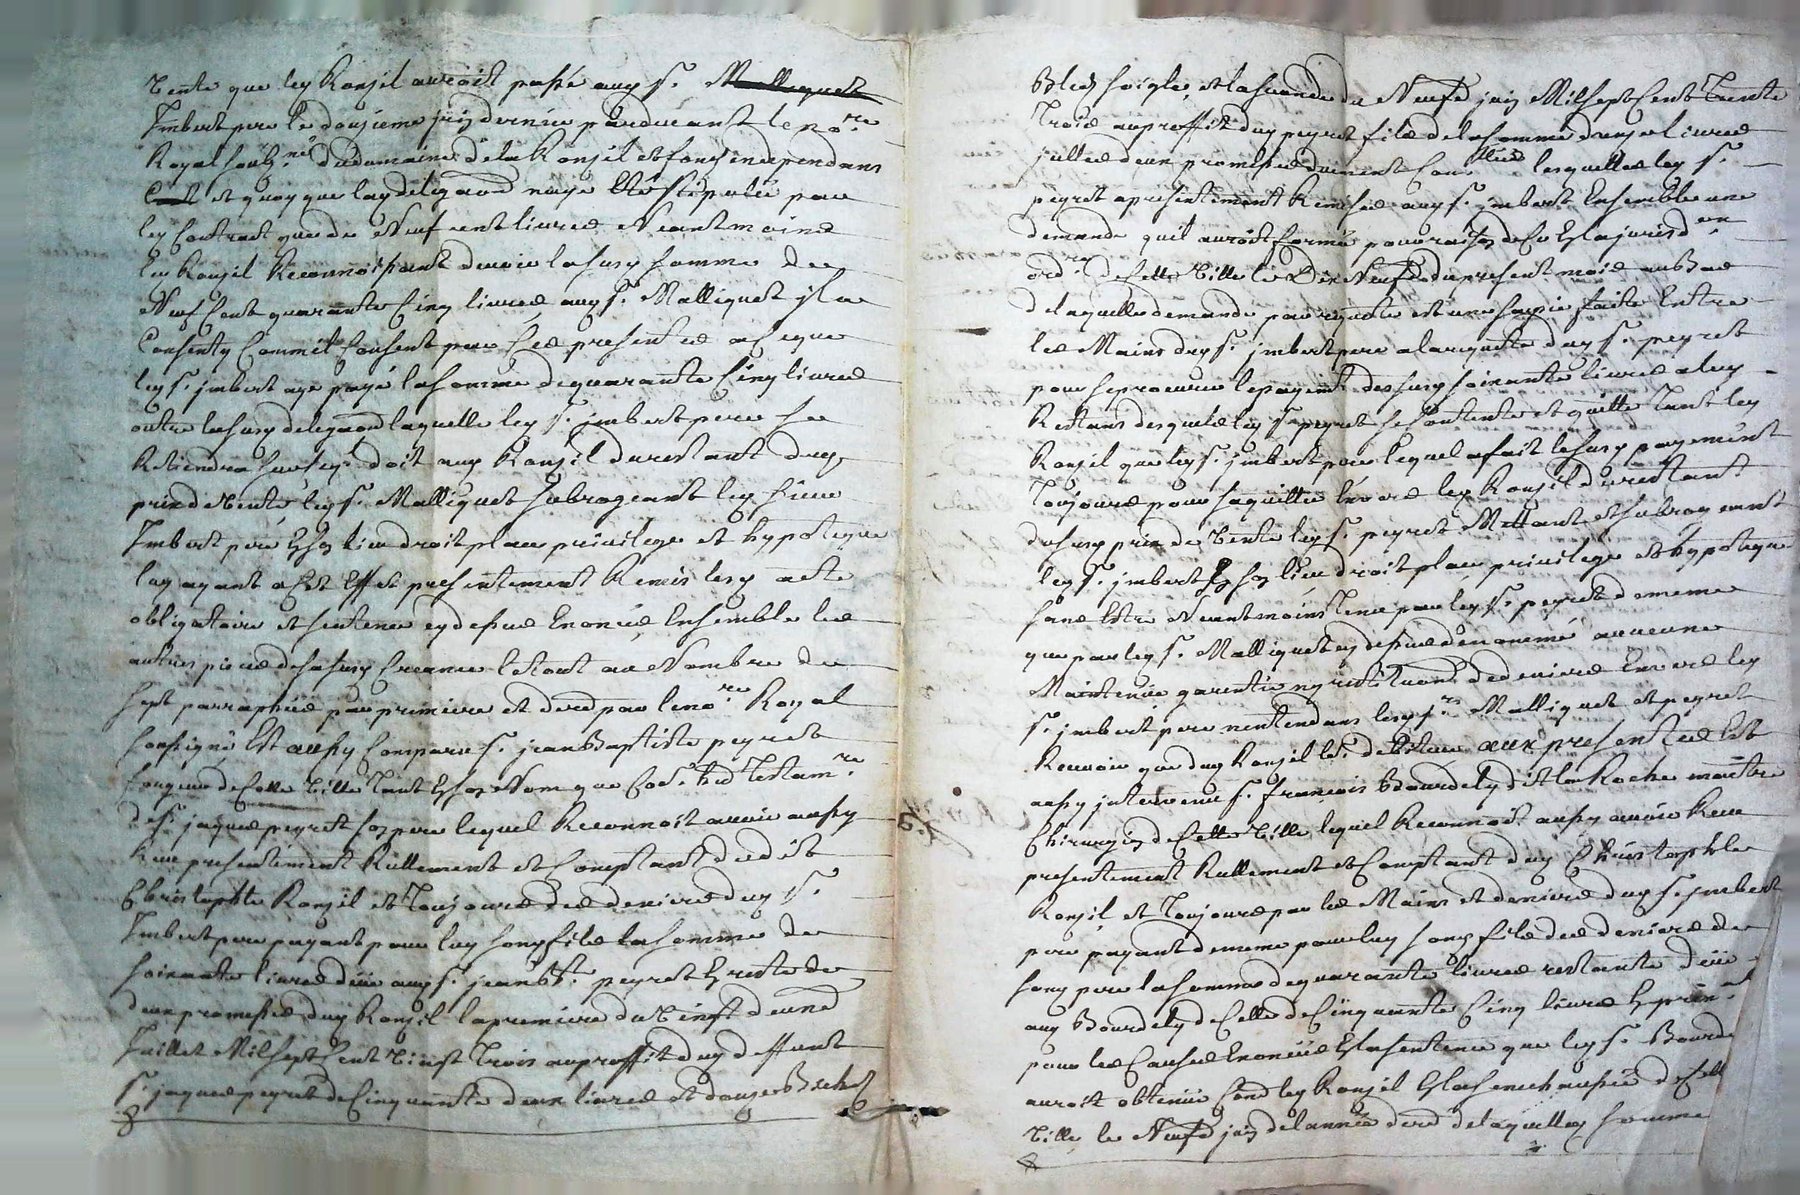 Vente que led Ronzil auroit passé aud sr. Malliquet
Imbert pere le douzieme juin dernier pardevant le nore
Royal soubzné du domaine de la Ronzil et fons en dependans
et quoy que lad delegaon naye été stipulée par
led Contract que de Neuf cent livres Neantmoins
led Ronzil Reconnoissant devoir la susd somme de
Neuf Cent quarante Cinq livres aud sr. Malliquet il a
Consenty Comme il Consent par Ces presentes a ce que
led sr. imbert aye payé la somme de quarante Cinq livres
outre la susd delegaon laquelle led sr. imbert pere se
Retiendra sur ce quil doit aud Ronzil du restant dud
prix de Vente led sr. Malliquet subrogeant led sieur
Imbert pere En son lieu droit place privilege et hypoteque
luy ayant a Cet Effet presentement Remis lesd acte
obligatoire et sentence cy dessus Enoncés Ensemble les
autres pieces de sa susd Creance le tout au Nombre de
sept parraphées par premiere et dere par le nore Royal
soussigné Est aussy Comparu sr. jean Baptiste peyret
de Cette Ville tant En son Nom que testamre
de sr. jaques peyret son pere lequel Reconnoit avoir aussy
Reçu presentement Réellement et Comptant dudit
Christophle Ronzil et toujours des deniers dud sr.
Imbert pere payant pour led sond fils la somme de
soixante livres düe aud sr. jean Bte. peyret En reste de
deux promesses dud Ronzil la premiere du Vingt deux
Juillet Mil sept Cent Vingt trois au proffit dud deffunt
sr. jaques peyret de Cinquante deux livres et douze Bichets
Bled seigle, et la seconde du Neufe juin Mil sept Cent Trente
Trois au proffit dud peyret fils de la somme d'onze livres
lesquelles led sr.
peyret a presentement Remises aud sr. imbert Ensemble une
demande quil auroit formée pour raison de Ce En la jurisdon
ordre de Cette Ville le Dix Neufe du present mois au Bas
de laquelle demande par requete est une saisie faite Entre
les Mains dud sr. imbert pere a la requete dud sr. peyret
pour se procurer le payemt des susd soixante livres a luy
Restans desquels led sr peyret se Contente et quitte tant led
Ronzil que led sr. imbert pere lequel a fait le susd payement
Toujours pour sa quitte Envers led Ronzil du restant
du susd prix de Vente led sr. peyret Mettant et subrogeant
led sr. imbert En son lieu droit place privilege et hypoteque
sans Estre Neantmoins tenu par led sr. peyret de meme
que par led sr. Malliquet cy dessus denommé aucune
Maintenüe garentie ny restituon de deniers Envers led
sr. imbert pere n'entendans lesd srs Malliquet et peyret
Recevoir que dud Ronzil aux presentes Est
aussy intervenu sr. françois Bourdely dit la Roche maitre
Chirurgien de Cette Ville lequel Reconnoit aussy avoir Reçu
presentement Réellement et Comptant dud Christophle
Ronzil et toujours par les Mains et deniers dud sr. Imbert
pere payant de meme pour led sond fils des deniers de
sond pere la somme de quarante livres restante düe
aud Bourdely de Celle de Cinquante Cinq livres En prinal
pour les Causes Enoncées En la sentence que led sr. Bourde
auroit obtenüe Cond led Ronzil En la senechaussée de Cette
Ville le Neufe juin de l'année dere de laquelle somme